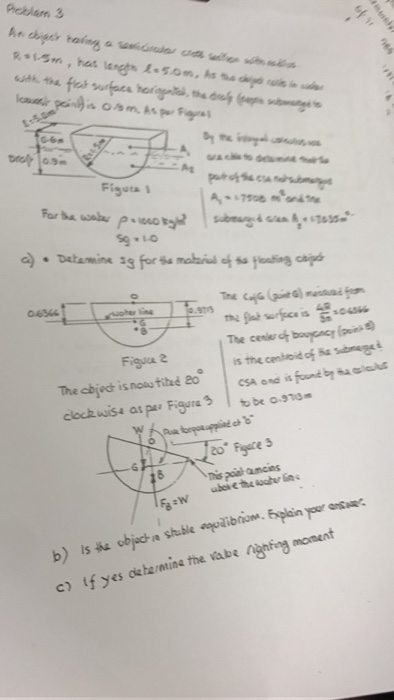 Problem 3
An object having a semicircular cross section with radius
R = 1.5m, has length l = 5.0m. As the object rests in water
with the flat surface horizontal, the draft (depth submerged to
lowest point) is 0.9m. As per Figure 1
l=5.0m
0.6m
Draft 0.9m
R=1.5m
A₁
A₂
Figure 1
By the integral calculus, we
are able to determine that the
part of the csa not submerged
A₁ = 1.7508 m² and the
submerged area A₂ = 1.7835m²
For the water ρ = 1000 kg/m³
Sg = 1.0
a) • Determine Sg for the material of the floating object
0.6366
O
water line
G
B
0.9713
Figure 2
The CofG (point G) measured from
the flat surface is 4R/3π = 0.6366
The center of buoyancy (point B)
is the centroid of the submerged
CSA and is found by the calculus
to be 0.9713m
The object is now tilted 20°
clockwise as per Figure 3
W
O
torque applied at "O"
20°
Figure 3
G
B
This point remains
above the water line
F_B = W
b) Is the object in stable equilibrium. Explain your answer.
c) If yes determine the value righting moment